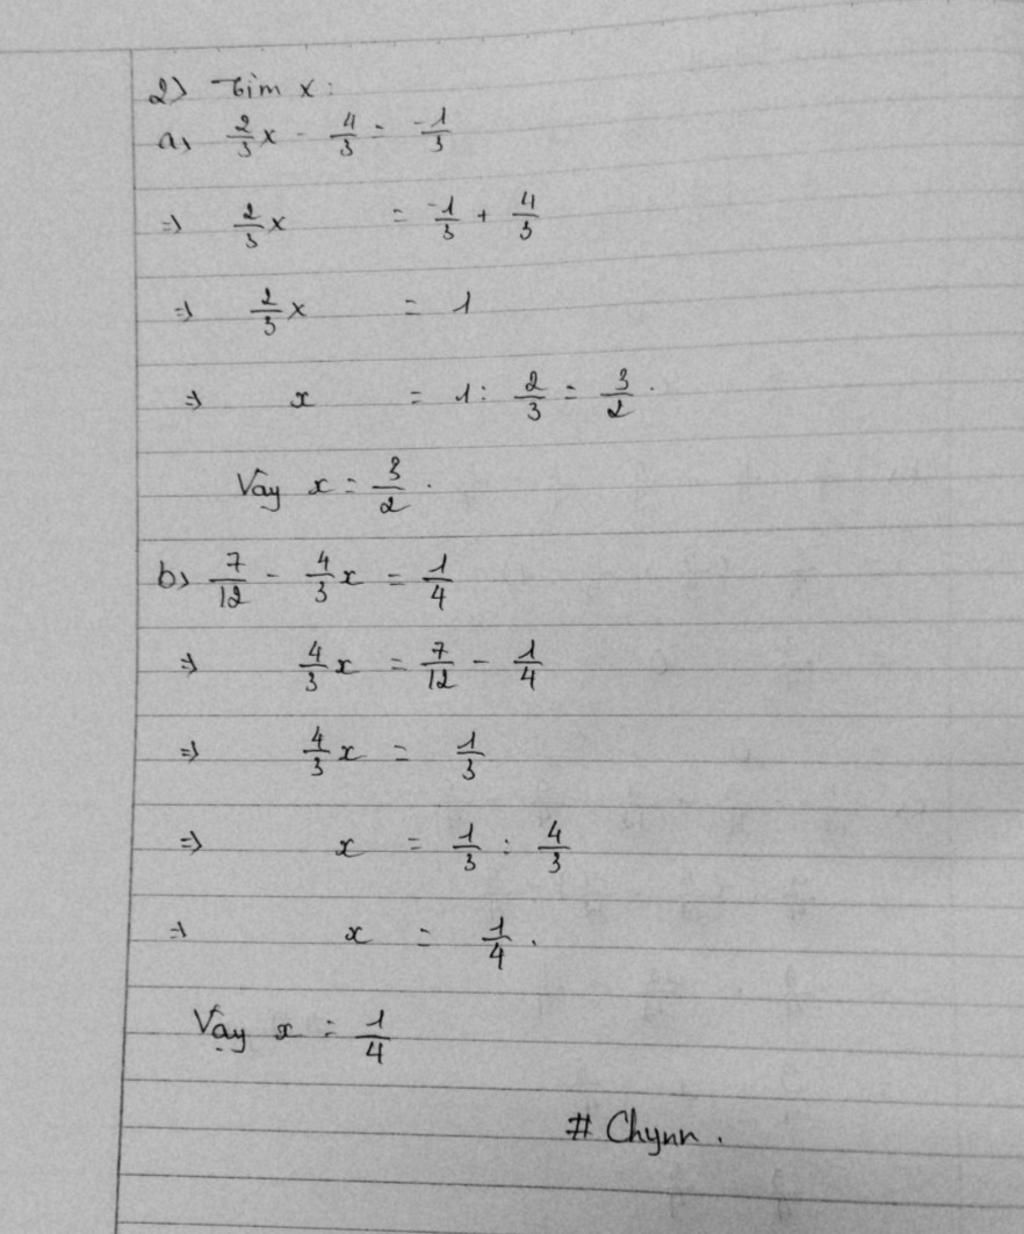 2) Tìm x:
a, 2/3 x - 4/3 = -1/3
=> 2/3 x = -1/3 + 4/3
=> 2/3 x = 1
=> x = 1 : 2/3 = 3/2.
Vậy x = 3/2.
b, 7/12 - 4/3 x = 1/4
=> 4/3 x = 7/12 - 1/4
=> 4/3 x = 1/3
=> x = 1/3 : 4/3
=> x = 1/4.
Vậy x = 1/4
# Chynn.